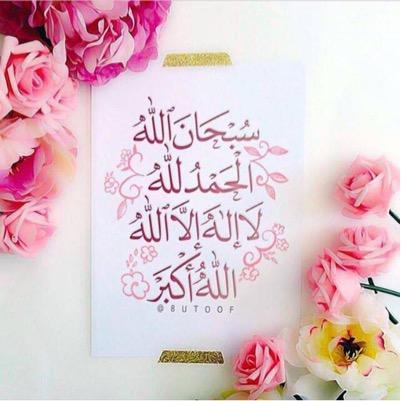 سُبْحَانَ ٱللَّهُ
الْحَمْدُ للّٰه
لَا إِلٰهَ إِلَّا ٱللَّهُ
اللهُ أَكْبَرْ
@8UTOOF